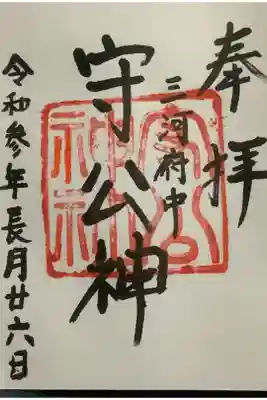 奉拝
三河府中
守公神
令和参年長月廿六日